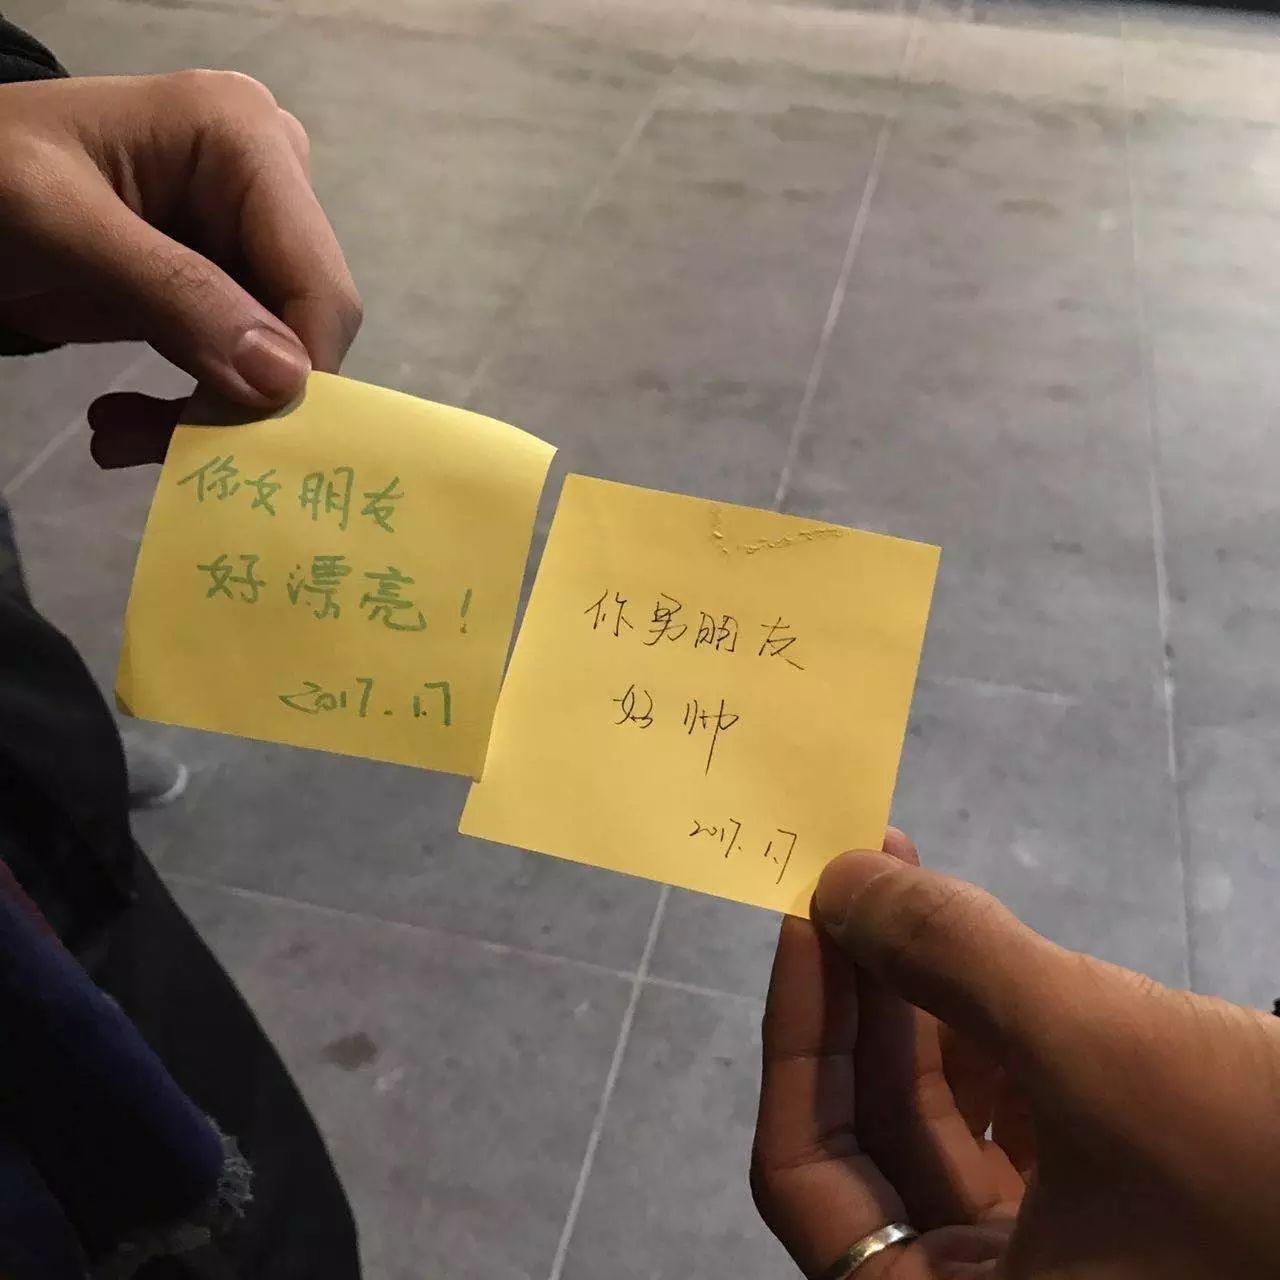 你女朋友
好漂亮！
2017.1.7
你男朋友
好帅
2017.1.7